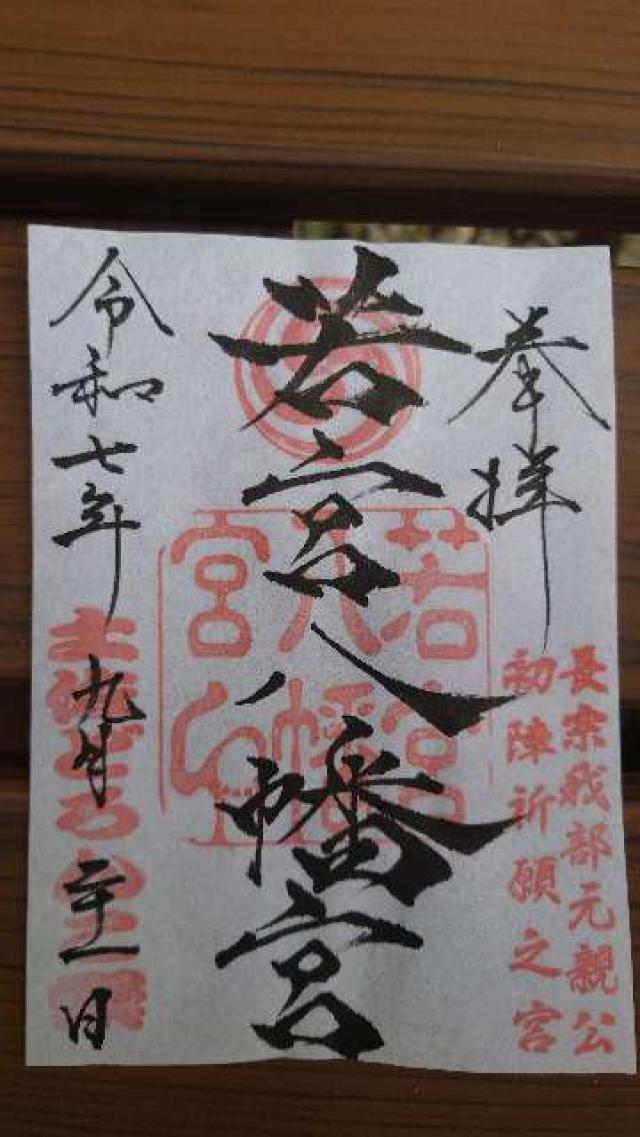 奉拝
長宗我部元親公
初陣祈願之宮
若宮八幡宮
若宮
八幡
宮
令和七年九月二十一日